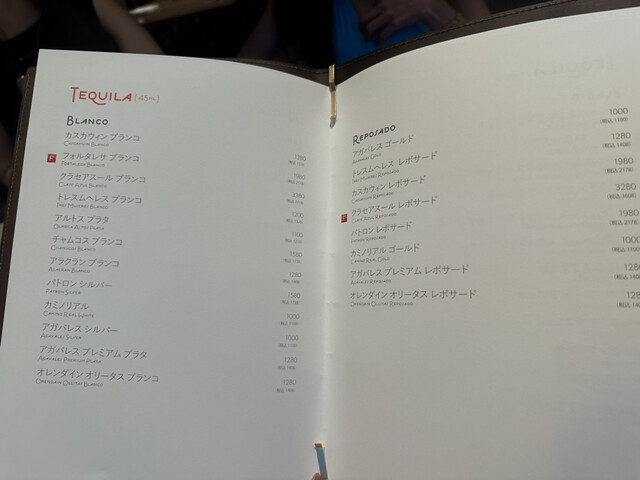 TEQUILA (45ml)
BLANCO
カスカウィン ブランコ
CASCAHUIN BLANCO
1280
F フォルタレサ ブランコ
FORTALEZA BLANCO
1980
クラセアスール ブランコ
CLASE AZUL BLANCO
トレスムヘレス ブランコ
TRES MUJERES BLANCO
1200
アルトス プラタ
OLMECA ALTOS PLATA
1100
チャムコス ブランコ
CHAMUCOS BLANCO
アラクラン ブランコ
ALACRAN BLANCO
1280
パトロン シルバー
PATRON SILVER
1280
カミノリアル
CAMINO REAL WHITE
1000
(税込 1100)
アガバレス シルバー
AGAVALES SILVER
1000
(税込 1100)
アガバレス プレミアム プラタ
AGAVALES PREMIUM PLATA
1280
(税込 1408)
オレンダイン オリータス ブランコ
ORENDAIN OLLITAS BLANCO
1280
(税込 1408)
REPOSADO
アガバレス ゴールド
AGAVALES GOLD
1000
(税込 1100)
トレスムヘレス レポサード
TRES MUJERES REPOSADO
1280
(税込 1408)
カスカウィン レポサード
CASCAHUIN REPOSADO
1980
(税込 2178)
F クラセアスール レポサード
CLASE AZUL REPOSADO
3280
(税込 3608)
パトロン レポサード
PATRON REPOSADO
1980
(税込 2178)
カミノリアル ゴールド
CAMINO REAL GOLD
1000
(税込 1100
アガバレス プレミアム レポサード
AGAVALES REPOSADO
128
(税込 140
オレンダイン オリータス レポサード
ORENDAIN OLLITAS REPOSADO
128
(税込 14